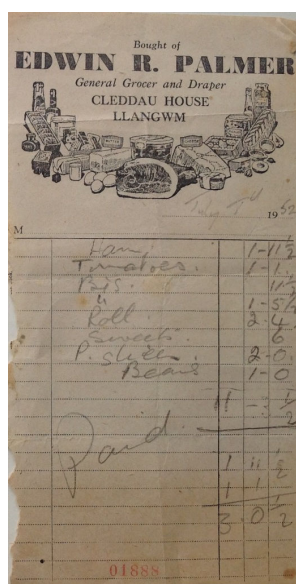 Bought of
EDWIN R. PALMER
General Grocer and Draper
CLEDDAU HOUSE
LLANGWM
July 19 52
M
Ham 1-11½
Tomatoes. 1-1
Bis. 11½
" 1-5½
Roll 2-4
Sweets. 6
P. slices. 2-0
Beans 1-0
11 - ½
Paid.
1 11 ½
1 1
3.0 ½
01888